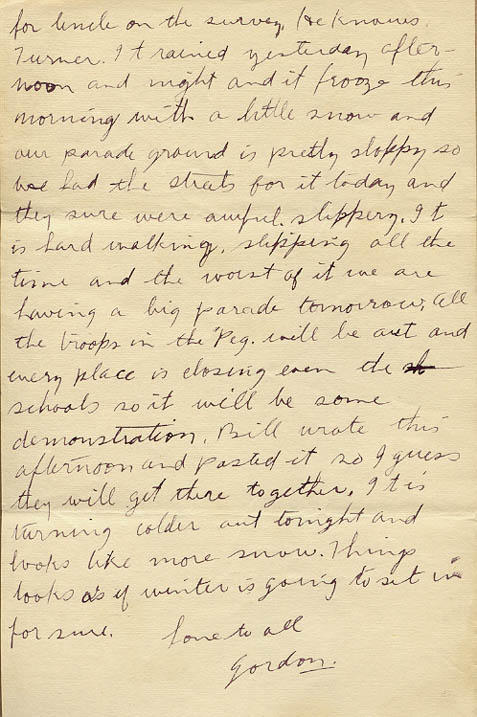 for Uncle on the survey. He knows
Turner. It rained yesterday after-
noon and night and it frooze this
morning with a little snow and
our parade ground is pretty sloppy so
we had the streets for it today and
they sure were awful slippery. It
is hard walking, slipping all the
time and the worst of it we are
having a big parade tomorrow, all
the troops in the Peg. will be out and
every place is closing even the
schools so it will be some
demonstration. Bill wrote this
afternoon and posted it so I guess
they will get there together. It is
turning colder out tonight and
looks like more snow. Things
looks as if winter is going to set in
for sure. Love to all
Gordon.